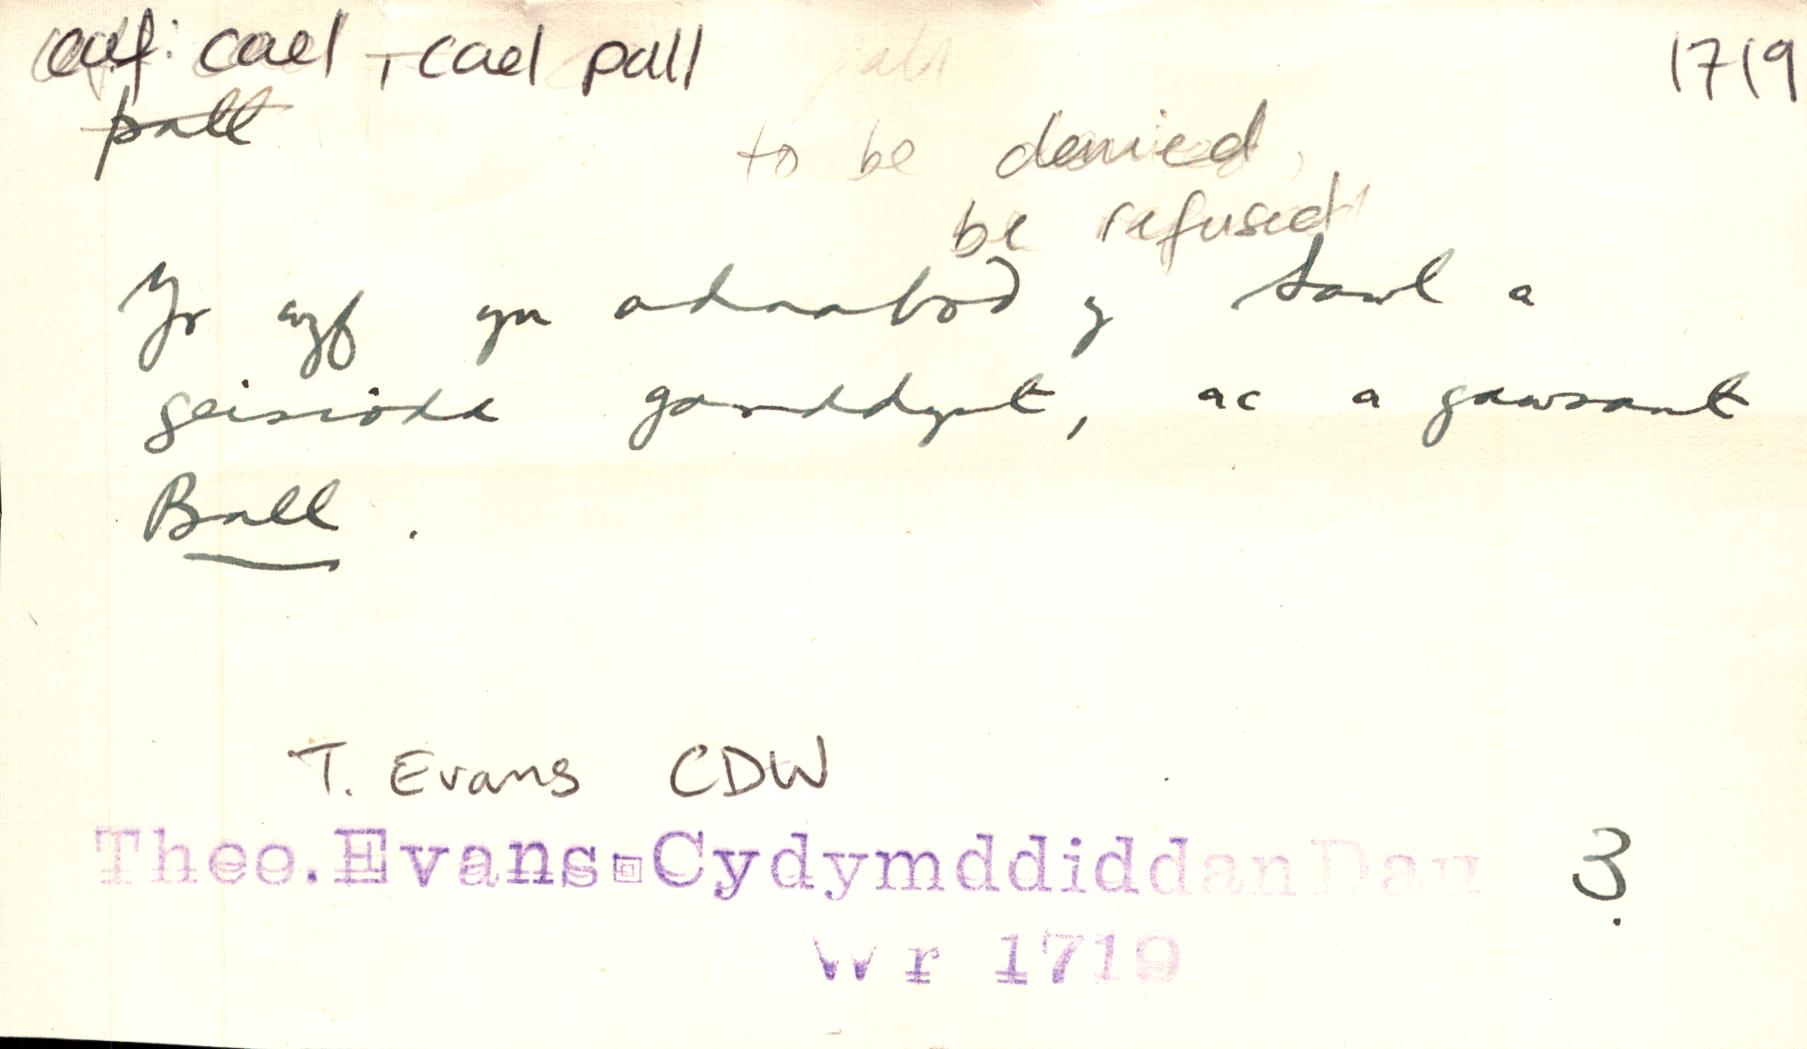 caf: cael, cael pall 1719
pall
to be denied,
be refused
Yr wyf yn adnabod y Sawl a
geisiodd ganddynt, ac a gawsant
Ball.
T. Evans CDW
Theo. Evans Cydymddiddan Dau 3.
Wr 1719